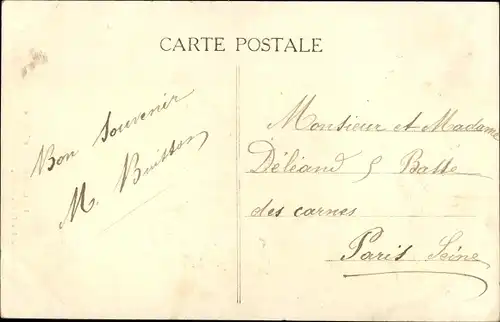 CARTE POSTALE
Bon Souvenir
M. Buisson
Monsieur et Madame
Déléand 5 Basse
des carnes
Paris Seine